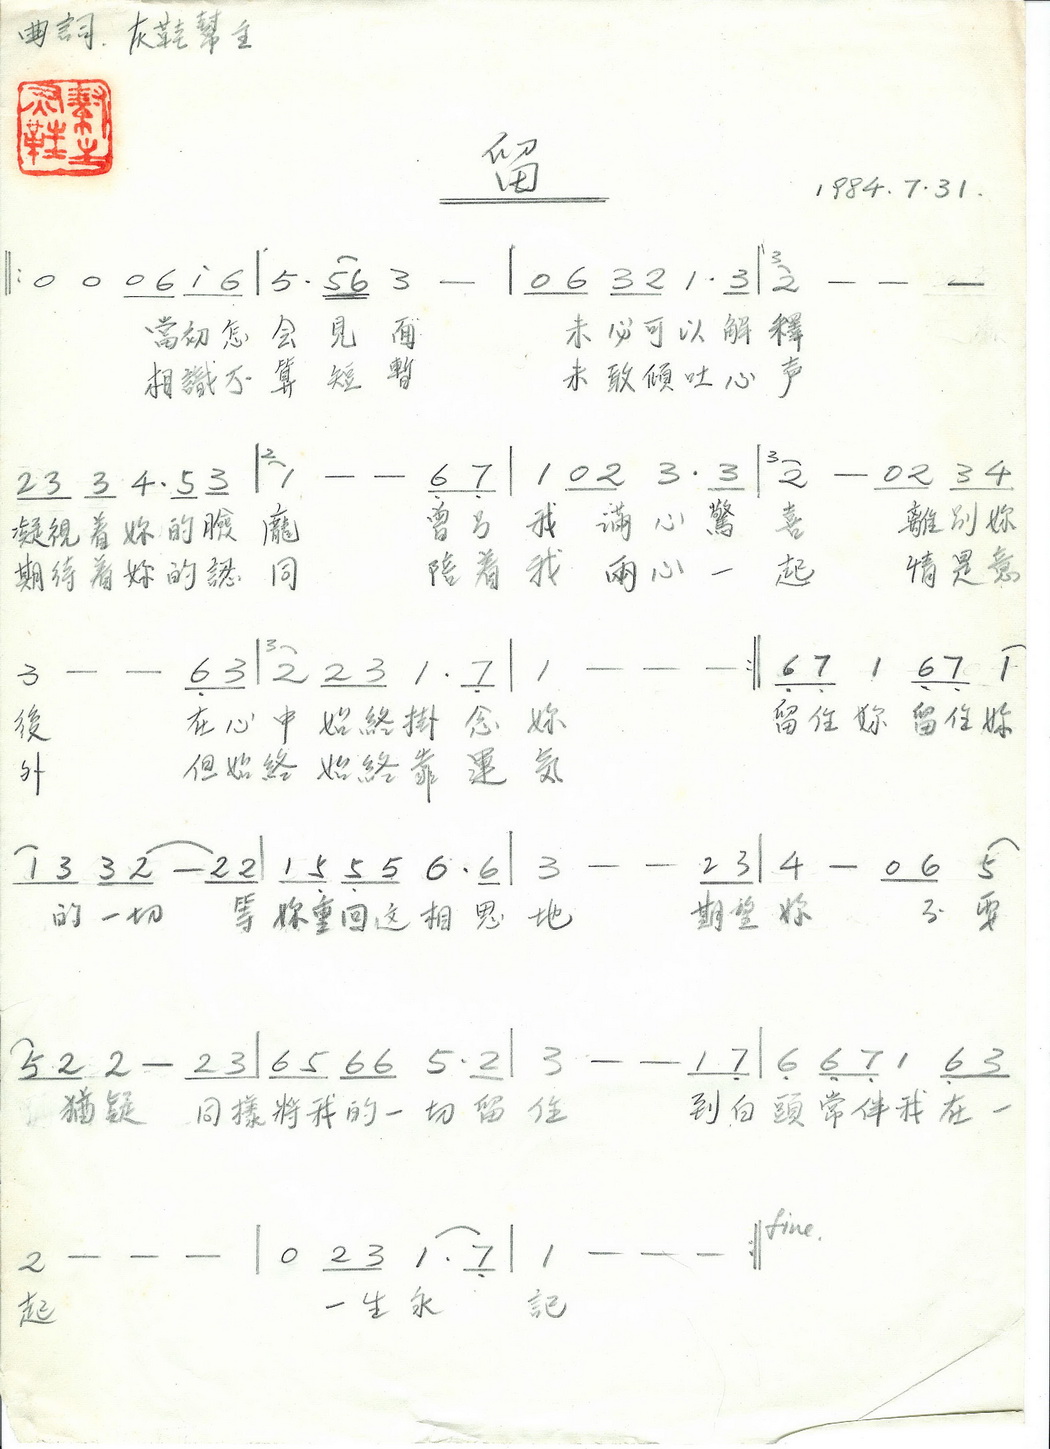 曲詞. 灰鞋幫主
灰鞋幫主
留
1984.7.31.
‖: 0 0 06 i6 | 5· 56 3 — | 06 32 1·3 | ³2 — — —
當初怎会見面 未必可以解釋
相識不算短暫 未敢傾吐心声
23 3 4·53 | ²1 — — 67 | 1 02 3·3 | ³2 — 02 34
凝視着妳的臉龐 曾与我滿心驚喜 離別妳
期待着妳的認同 陪着我兩心一起 情是意
3 — — 63 | ³2 23 1·7 | 1 — — — :‖ 67 1 67 1
後 在心中始終掛念妳 留住妳留住妳
外 但始終始終靠運氣
13 32 — 22 | 15 55 6·6 | 3 — — 23 | 4 — 06 5
的一切 等妳重回这相思地 期望妳 不要
52 2 — 23 | 65 66 5·2 | 3 — — 17 | 6 67 1 63
猶疑 同樣將我的一切留住 到白頭常伴我在一
2 — — — | 0 23 1·7 | 1 — — — :‖ fine.
起 一生永記